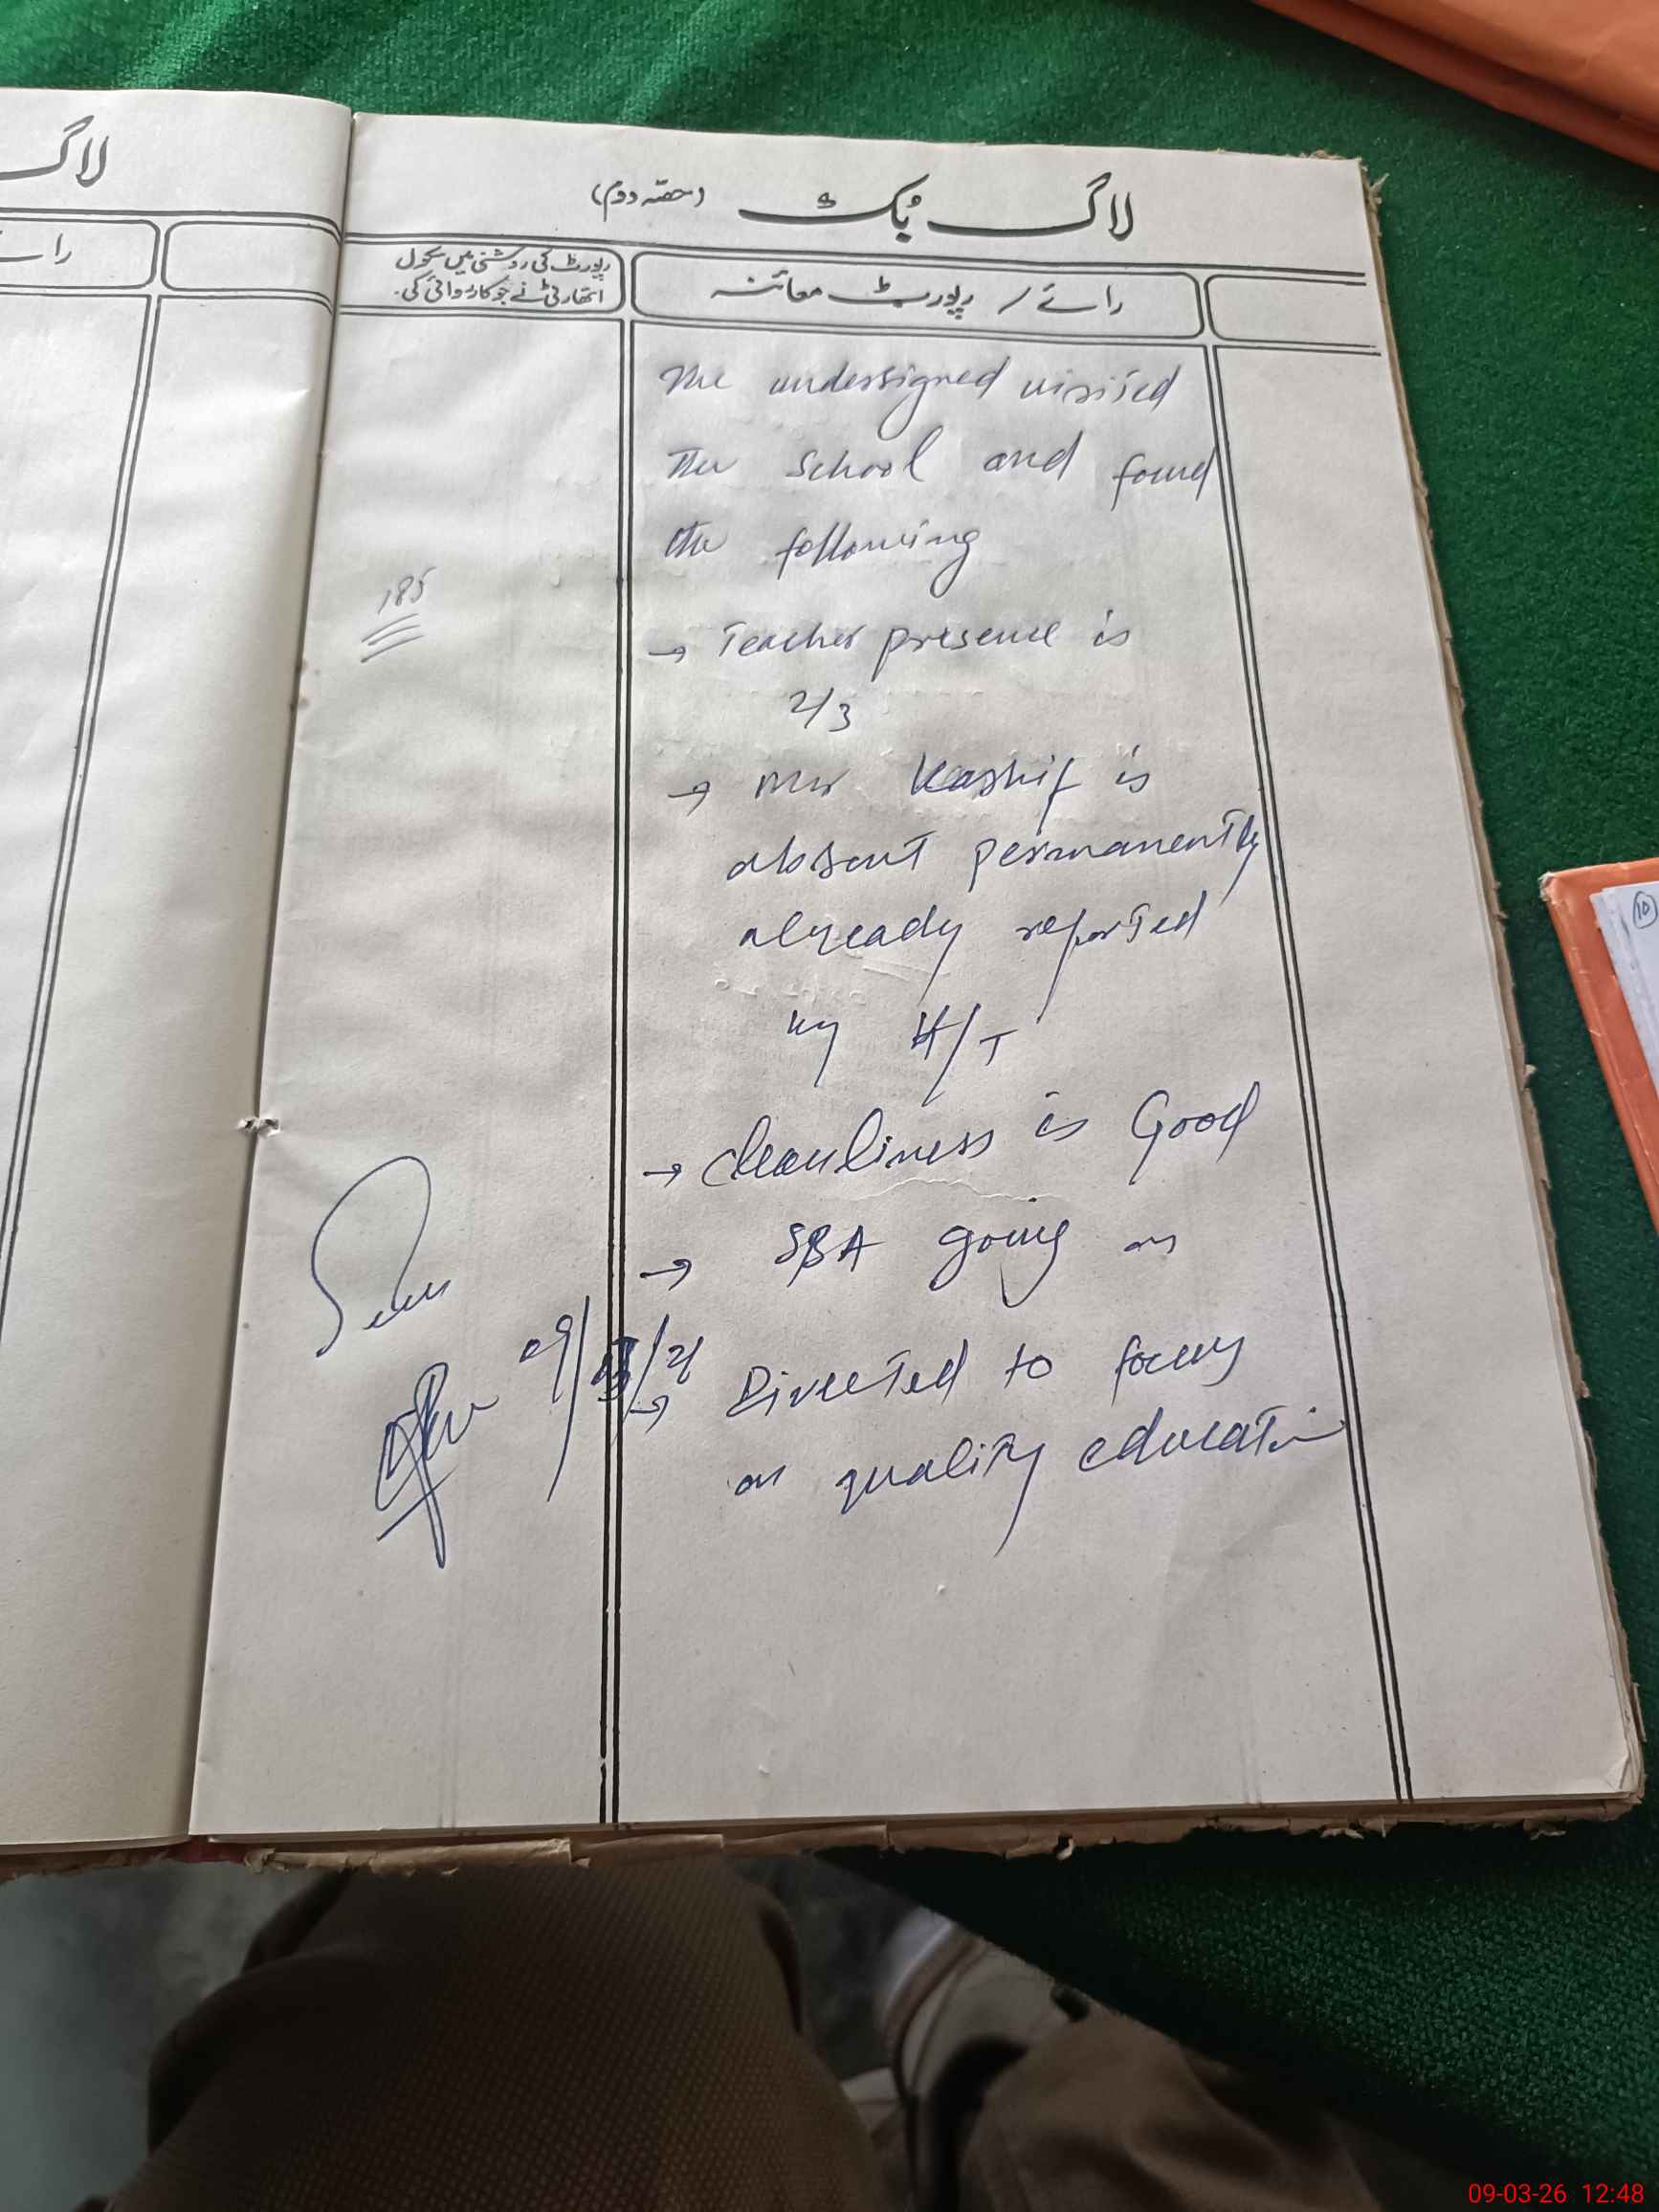 لاگ
را
لاگ بک (حصہ دوم)
رپورٹ کی روشنی میں سکول
اتھارٹی نے جو کارروائی کی۔
رائے / رپورٹ معائنہ
The undersigned visited
the school and found
the following
185
→ Teacher presence is
2/3
→ Mr Kashif is
absent permanently
already reported
by H/T
→ cleanliness is Good
→ SBA going on
→ Directed to focus
on quality education
10
09-03-26 12:48